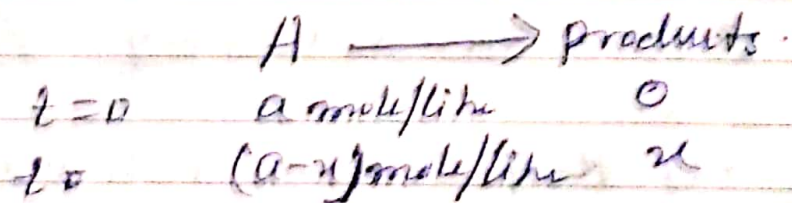 A ⟶ products.
t=0 a mole/litre 0
t= (a-x) mole/litre x